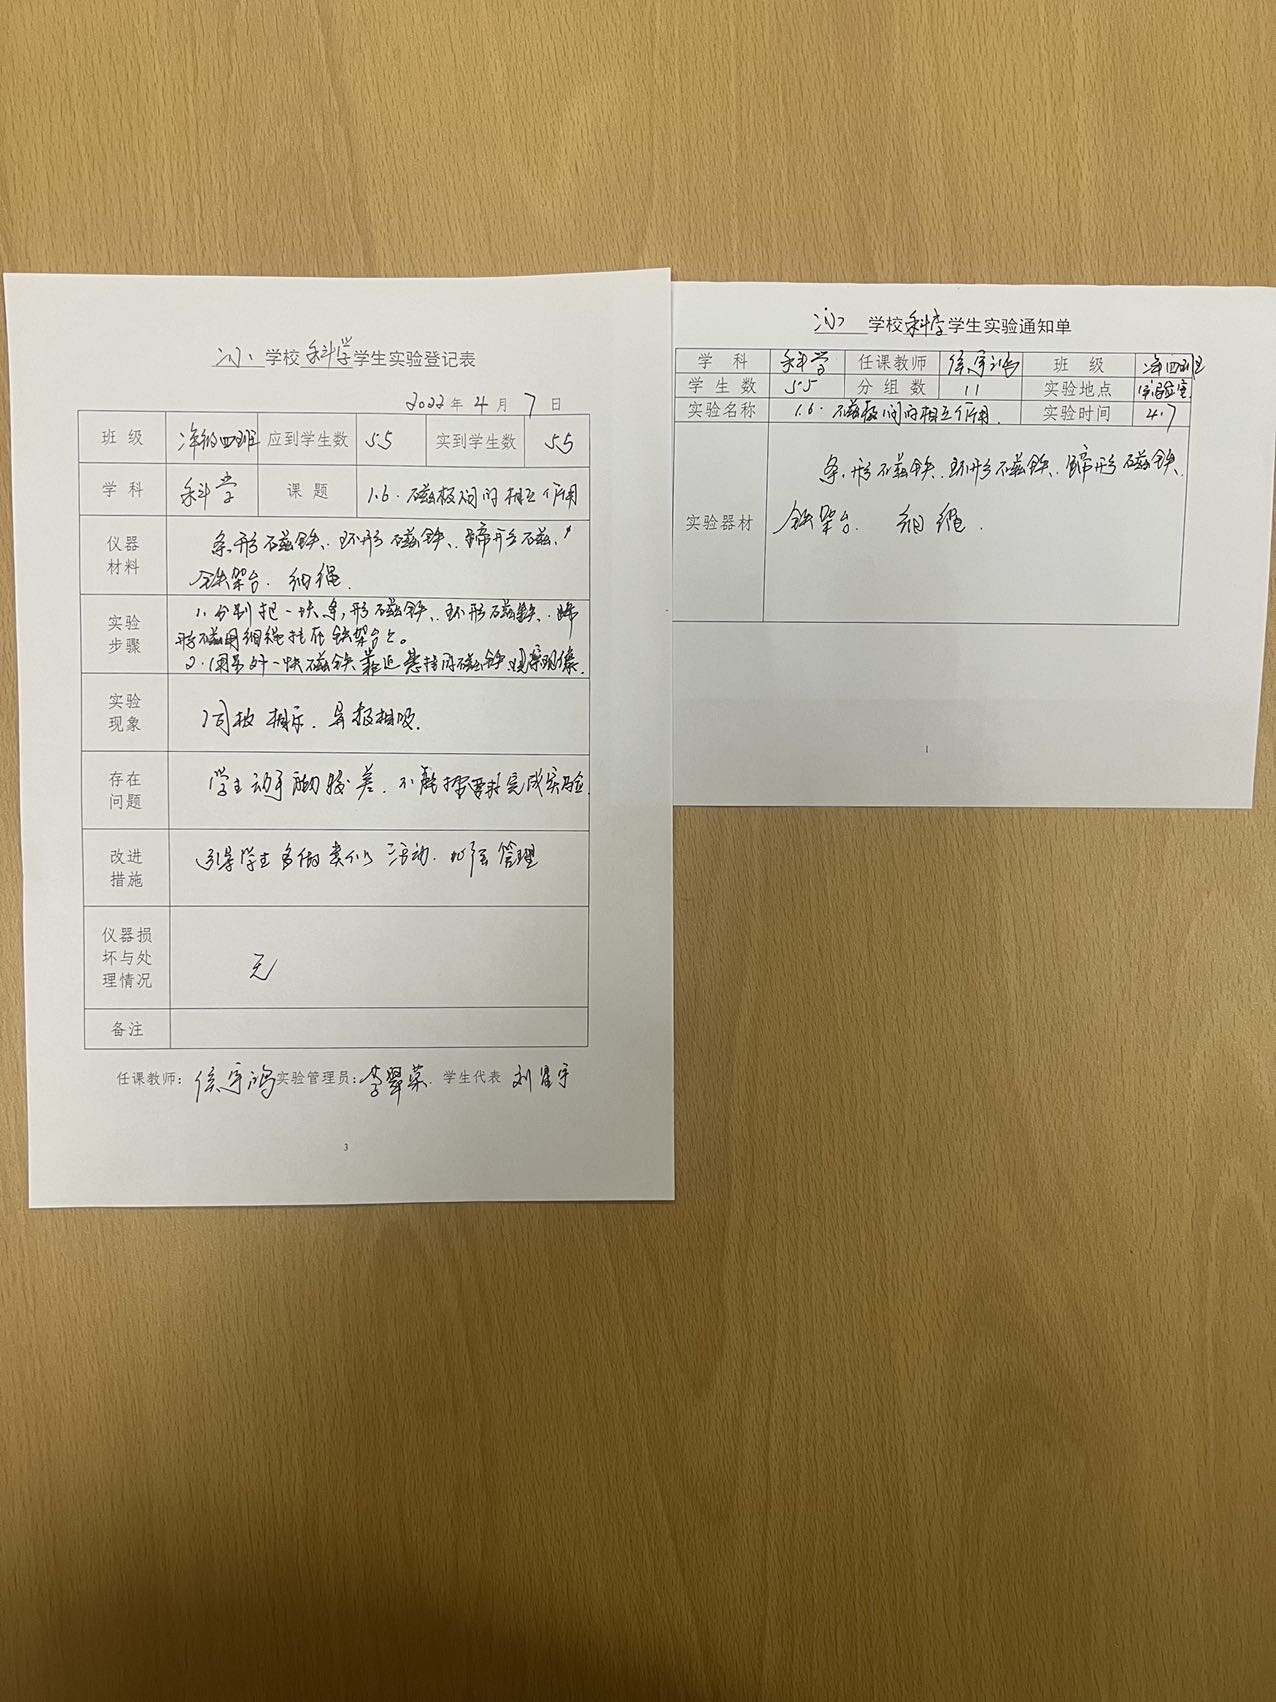 学校科学学生实验登记表
2022年4月7日
班级 年级四班 应到学生数 55 实到学生数 55
学科 科学 课题 1.6.磁极间的相互作用
仪器材料 条形磁铁、环形磁铁、蹄形磁
铁架台.细绳.
实验步骤 1.分别把一块条形磁铁、环形磁铁、蹄
形磁用细绳挂在铁架台上。
2.用另外一块磁铁靠近悬挂的磁铁,观察现象.
实验现象 同极相斥.异极相吸.
存在问题 学生动手能力较差.不能按要求完成实验.
改进措施 引导学生多做类似活动.加强管理
仪器损坏与处理情况 无
备注
任课教师: 宇鸿 实验管理员: 李翠荣. 学生代表 刘星宇
3
学校科学学生实验通知单
学科 科学 任课教师 宇鸿 班级 年四班
学生数 55 分组数 11 实验地点 实验室
实验名称 1.6.磁极间的相互作用. 实验时间 4.7
实验器材 条形磁铁、环形磁铁、蹄形磁铁、
铁架台. 细绳.
1